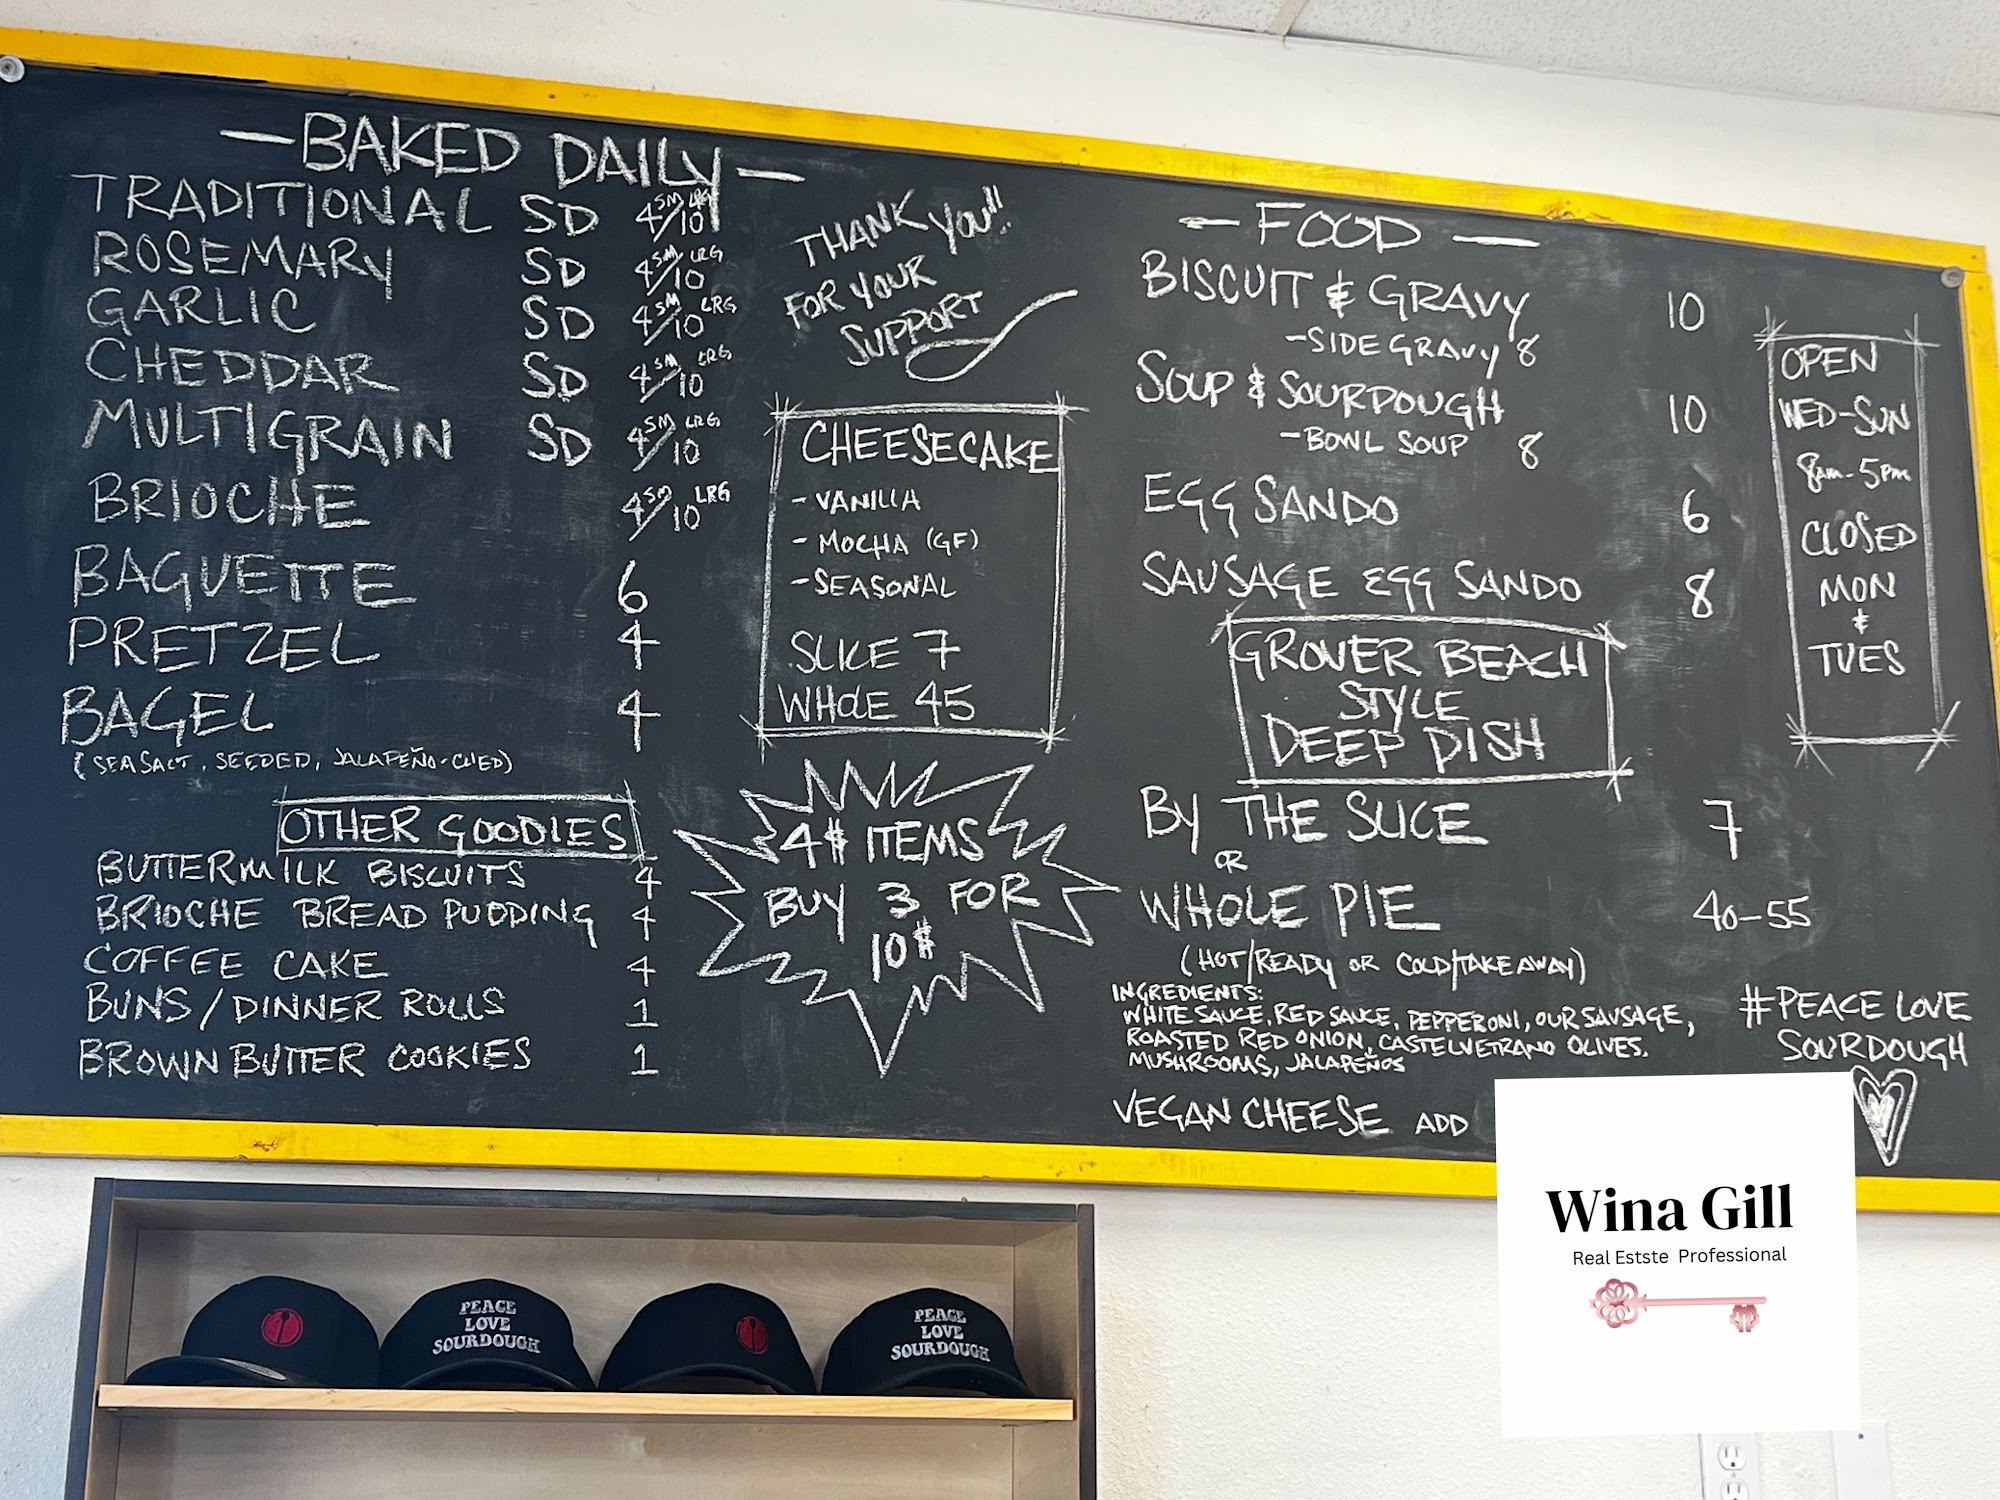 —BAKED DAILY—
TRADITIONAL SD 4SM/10LRG
ROSEMARY SD 4SM/10LRG
GARLIC SD 4SM/10LRG
CHEDDAR SD 4SM/10LRG
MULTIGRAIN SD 4SM/10LRG
BRIOCHE 4SM/10LRG
BAGUETTE 6
PRETZEL 4
BAGEL 4
(SEASALT, SEEDED, JALAPEÑO-CHED)
OTHER GOODIES
BUTTERMILK BISCUITS 4
BRIOCHE BREAD PUDDING 4
COFFEE CAKE 4
BUNS/DINNER ROLLS 1
BROWN BUTTER COOKIES 1
THANK YOU!!
FOR YOUR
SUPPORT
CHEESECAKE
- VANILLA
- MOCHA (GF)
- SEASONAL
SLICE 7
WHOLE 45
4$ ITEMS
BUY 3 FOR
10$
— FOOD —
BISCUIT & GRAVY 10
-SIDE GRAVY 8
SOUP & SOURDOUGH 10
-BOWL SOUP 8
EGG SANDO 6
SAUSAGE EGG SANDO 8
GROVER BEACH
STYLE
DEEP DISH
BY THE SLICE 7
OR
WHOLE PIE 40-55
(HOT/READY OR COLD/TAKE AWAY)
INGREDIENTS:
WHITE SAUCE, RED SAUCE, PEPPERONI, OUR SAUSAGE,
ROASTED RED ONION, CASTELVETRANO OLIVES.
MUSHROOMS, JALAPEÑOS
VEGAN CHEESE ADD
OPEN
WED-SUN
8am-5pm
CLOSED
MON
&
TUES
#PEACE LOVE
SOURDOUGH
Wina Gill
Real Estste Professional
PEACE
LOVE
SOURDOUGH
PEACE
LOVE
SOURDOUGH